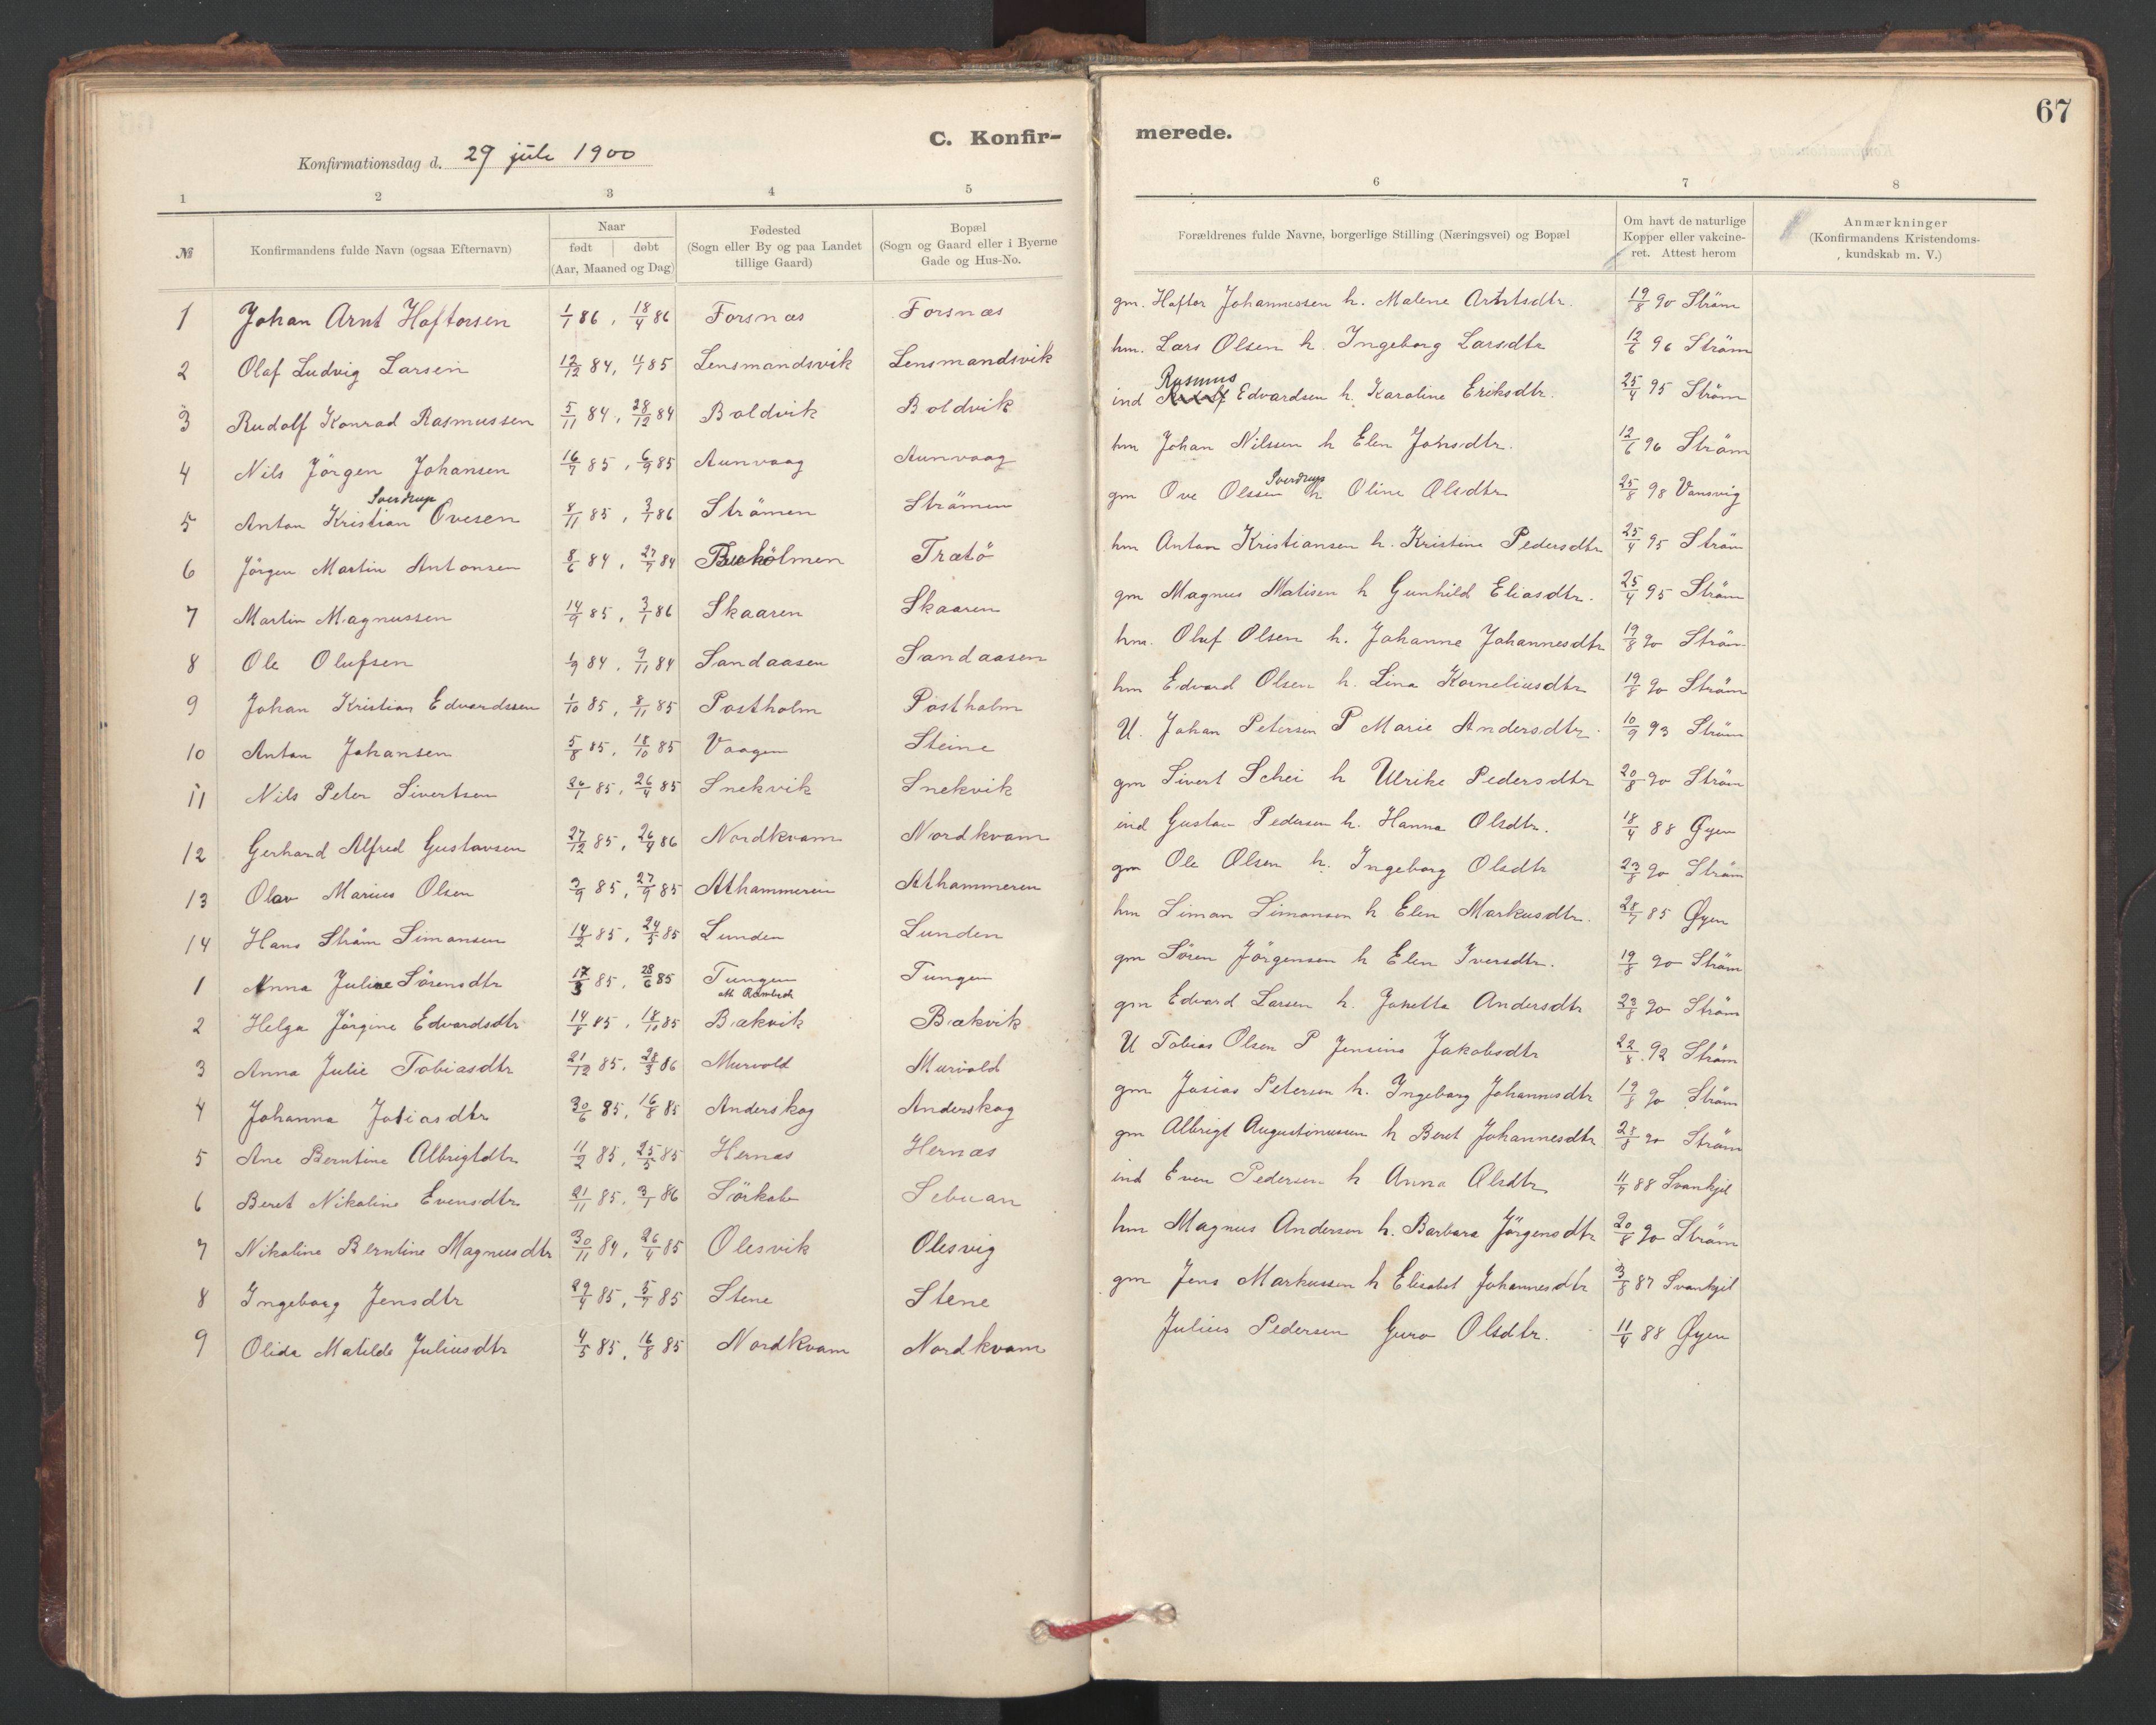 67
C. Konfir-
merede.
Konfirmationsdag d. 29 juli 1900
1 2 3 4 5 6 7 8
№
Konfirmandens fulde Navn (ogsaa Efternavn)
Naar
født | døbt
(Aar, Maaned og Dag)
Fødested
(Sogn eller By og paa Landet
tillige Gaard)
Bopæl
(Sogn og Gaard eller i Byerne
Gade og Hus-No.
Forældrenes fulde Navne, borgerlige Stilling (Næringsvei) og Bopæl
Om havt de naturlige
Kopper eller vakcine-
ret. Attest herom
Anmærkninger
(Konfirmandens Kristendoms-
kundskab m. V.)
1 Johan Arnt Haftorsen 1/1 86, 18/4 86 Forsnæs Forsnæs gm. Haftor Johannessen h. Malene Arntsdtr. 19/8 90 Ström
2 Olaf Ludvig Larsen 12/12 84, 11/1 85 Lensmandsvik Lensmandsvik hm. Lars Olsen h. Ingeborg Larsdtr 12/6 96 Ström
3 Rudolf Konrad Rasmussen 5/11 84, 28/12 84 Boldvik Boldvik ind Rasmus Edvardsen h. Karoline Eriksdtr. 25/4 95 Ström
4 Nils Jörgen Johansen 16/7 85, 6/9 85 Aunvaag Aunvaag hm Johan Nilssen h Elen Johsdtr. 12/6 96 Ström
5 Anton Kristian Sverdrup Ovesen 8/11 85, 3/1 86 Strömen Strömen gm Ove Olssen Sverdrup h Oline Olsdtr 25/8 98 Vansvig
6 Jörgen Martin Antonsen 8/6 84, 27/7 84 Trætö hm Anton Kristiansen h. Kristine Pedersdtr 25/4 95 Ström
7 Martin Magnussen 14/9 85, 3/1 86 Skaaren Skaaren gm Magnus Matisen h Gunhild Eliasdtr. 25/4 95 Ström
8 Ole Olufsen 1/9 84, 9/11 84 Sandaasen Sandaasen hm. Oluf Olsen h. Johanne Johannesdtr 19/8 90 Ström
9 Johan Kristian Edvardssen 1/10 85, 8/11 85 Postholm Postholm hm Edvard Olsen h. Lina Korneliusdtr 19/8 90 Ström
10 Anton Johansen 5/8 85, 18/10 85 Vaagen Steine U. Johan Petersen P Marie Andersdtr. 10/9 93 Ström
11 Nils Peter Sivertsen 26/1 85, 26/4 85 Snekvik Snekvik gm Sivert Schei h Ulrike Pedersdtr 20/8 90 Ström
12 Gerhard Alfred Gustavsen 27/12 85, 26/4 86 Nordkvam Nordkvam ind Gustav Pedersen h. Hanna Olsdtr. 18/4 88 Øyen
13 Olav Marius Olsen 3/9 85, 27/9 85 Athammeren Athammeren gm Ole Olsen h. Ingeborg Olsdtr 23/8 90 Ström
14 Hans Ström Simonsen 14/2 85, 24/5 85 Lunden Lunden hm Simon Simonsen h Elen Markusdtr. 28/7 85 Øyen
1 Anna Juline Sörensdtr 17/3 85, 28/6 85 Tungen Tungen gm Sören Jörgensen h Elen Iversdtr. 19/8 90 Ström
2 Helga Jörgine Edvardsdtr 14/8 85, 18/11 85 Bækvik Bækvik gm Edvard Larsen h. Jonetta Andersdtr 23/8 90 Ström
3 Anna Julie Tobiasdtr 21/12 85, 28/3 86 Murvold Murvold U Tobias Olsen P Jensine Jakobsdtr 22/8 92 Ström
4 Johanna Josiasdtr 30/6 85, 16/8 85 Anderskog Anderskog gm Josias Petersen h. Ingeborg Johannesdtr 19/8 90 Ström
5 Ane Berntine Albrigtdtr 11/2 85, 25/5 85 Hernæs Hernæs gm Albrigt Augustinussen h Beret Johannesdtr 28/8 90 Ström
6 Beret Nikoline Evensdtr 21/11 85, 3/1 86 ind Even Pedersen h Anna Olsdtr 11/7 88 Svankjil
7 Nikoline Berntine Magnusdtr 30/11 84, 26/4 85 Olesvik Olesvig hm Magnus Andersen h. Barbara Jörgensdtr 20/8 90 Ström
8 Ingeborg Jensdtr 29/4 85, 5/7 85 Stene Stene gm Jens Markussen h Elisabet Johannesdtr 3/8 87 Svankjil
9 Olida Matilde Juliusdtr 4/5 85, 16/8 85 Nordkvam Nordkvam Julius Pedersen Guro Olsdtr. 11/4 88 Øyen